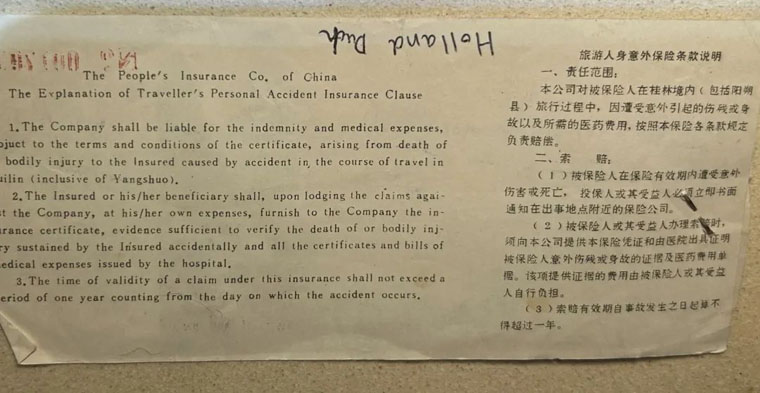 Holland Dich
The People's Insurance Co. of China
The Explanation of Traveller's Personal Accident Insurance Clause
1.The Company shall be liable for the indemnity and medical expenses,
bjuct to the terms and conditions of the certificate, arising from death of
bodily injury to the Insured caused by accident in the course of travel in
uilin (inclusive of Yangshuo).
2.The Insured or his/her beneficiary shall, upon lodging the claims agai-
st the Company, at his/her own expenses, furnish to the Company the in-
urance certificate, evidence sufficient to verify the death of or bodily inj-
ry sustained by the Insured accidentally and all the certificates and bills of
edical expenses issued by the hospital.
3.The time of validity of a claim under this insurance shall not exceed a
eriod of one year counting from the day on which the accident occurs.
旅游人身意外保险条款说明
一、责任范围:
本公司对被保险人在桂林境内(包括阳朔
县)旅行过程中,因遭受意外引起的伤残或身
故以及所需的医药费用,按照本保险各条款规定
负责赔偿。
二、索 赔:
(1)被保险人在保险有效期内遭受意外
伤害或死亡,投保人或其受益人必须立即书面
通知在出事地点附近的保险公司。
(2)被保险人或其受益人办理索赔时,
须向本公司提供本保险凭证和由医院出具证明
被保险人意外伤残或身故的证据及医药费用单
据。该项提供证据的费用由被保险人或其受益
人自行负担。
(3)索赔有效期自事故发生之日起算不
得超过一年。